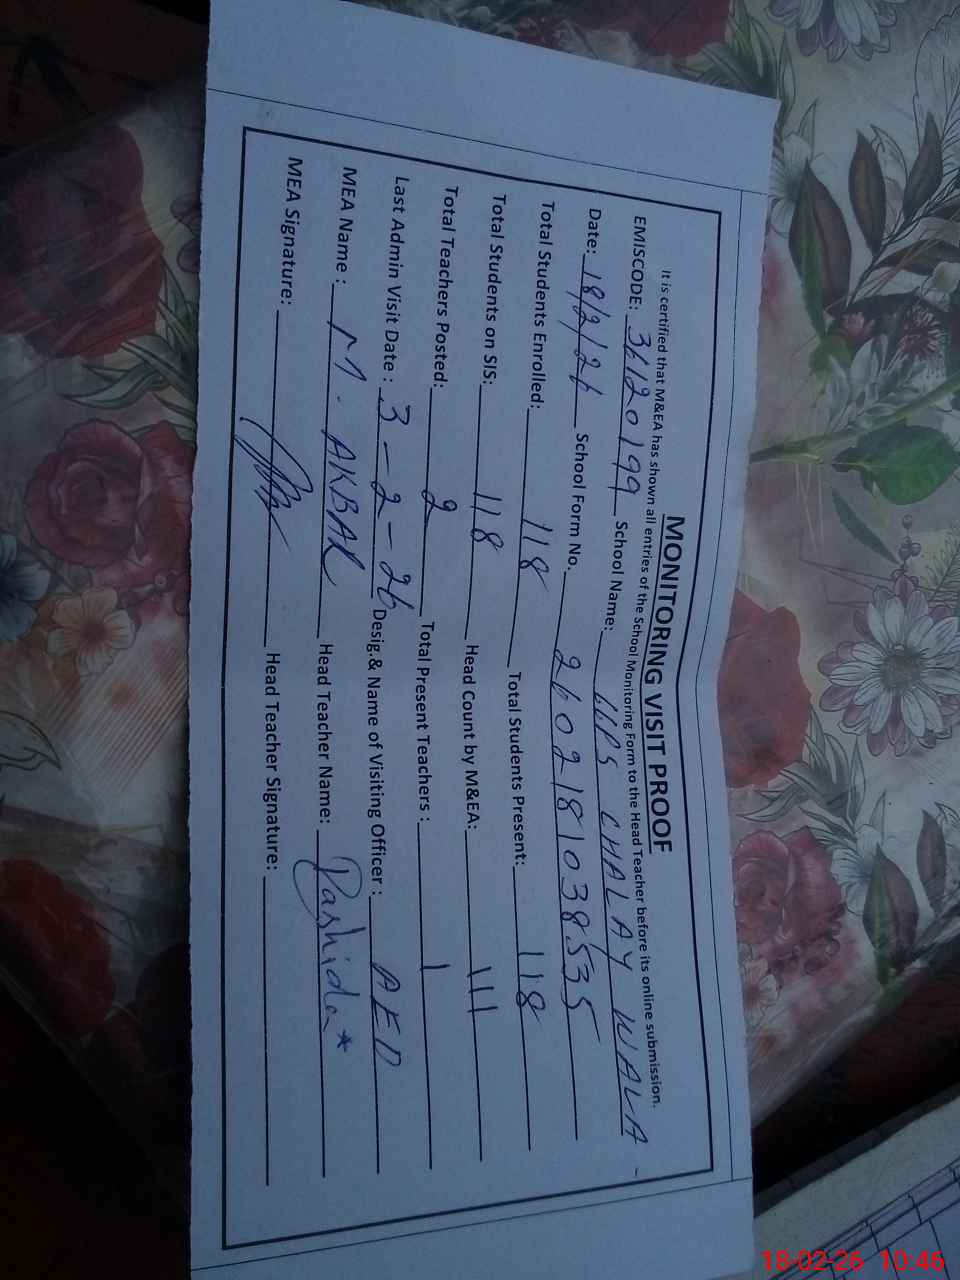 MONITORING VISIT PROOF
It is certified that M&EA has shown all entries of the School Monitoring Form to the Head Teacher before its online submission.
EMISCODE: 36120199 School Name: GGPS CHALAY WALA -
Date: 18/2/26 School Form No. 2602181038535
Total Students Enrolled: 118 Total Students Present: 118
Total Students on SIS: 118 Head Count by M&EA: 111
Total Teachers Posted: 2 Total Present Teachers : 1
Last Admin Visit Date : 3-2-26 Desig.& Name of Visiting Officer : AEO
MEA Name : M. AKBAR Head Teacher Name: Rashida*
MEA Signature: Head Teacher Signature:
18-02-26 10:46